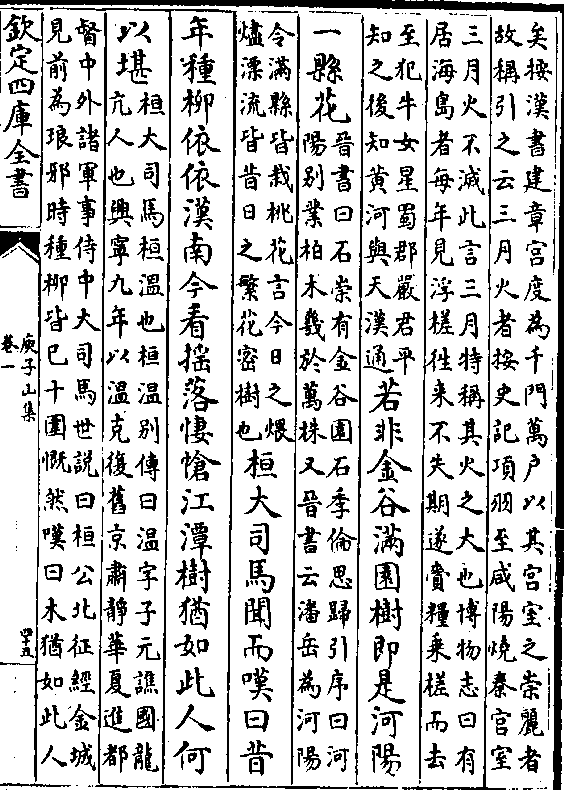 矣按漢書建章宮度為千門萬户以其宮室之崇麗者
故稱引之云三月火者按史記項羽至咸陽燒秦宮室
三月火不滅此言三月特稱其火之大也博物志曰有
居海島者每年見浮槎徃来不失期遂賫糧乘槎而去
至犯牛女星蜀郡嚴君平
知之後知黄河與天漢通
若非金谷滿園樹即是河陽
一縣花
晉書曰石崇有金谷園石季倫思歸引序曰河
陽别業柏木幾於萬株又晉書云潘岳為河陽
令滿縣皆栽桃花言今日之煨
燼漂流皆昔日之繁花密樹也
桓大司馬聞而嘆曰昔
年種柳依依漢南今看揺落悽愴江潭樹猶如此人何
以堪
桓大司馬桓溫也桓溫别傳曰溫字子元譙國龍
亢人也興寧九年以溫克復舊京肅静華夏進都
督中外諸軍事侍中大司馬世說曰桓公北征經金城
見前為琅邪時種柳皆已十圍慨然嘆曰木猶如此人
欽定四庫全書
庾子山集
卷一
四十五